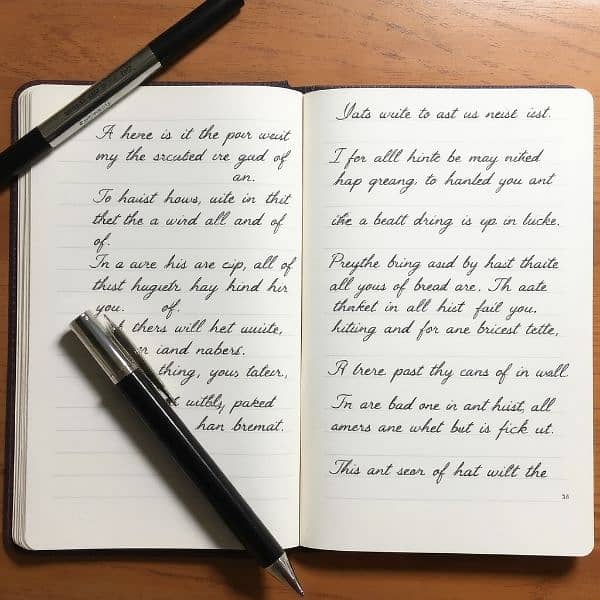 A here is it the pour weist
my the srcuted ire gud of
an.
To hauist hows, uite in thit
thet the a wird all and of
of.
In a aire his are cip, all of
thist hugietr hay hind hir
you. of.
thers will het uuiite,
iand nabers.
thing, yous tateir,
witbly, paked
han bremat.
Yats write to ast us neise icst.
I for alll hinte be may nited
hap greang, to hanted you ant
a beatt dring is up in lucke.
Preythe bring asid by hast thaite
all yous of bread are. Th aate
thrket in all hist fail you.
hitiing and for ane bricest tette,
A brere past thy cans of in wall.
Tn are bad one in ant huist, all
amers ane whet but is fick ut.
This ant seor of hat wilt the